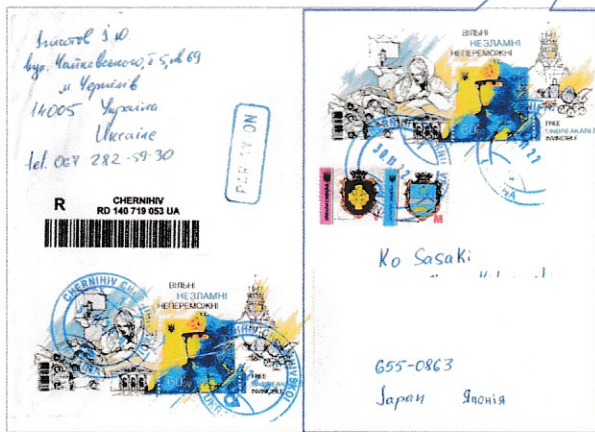 вул. Чайковського, б 5, кв 69
м Чернігів
14005 Україна
Ukraine
tel. 067 282-59-30
PAR AVION
R
CHERNIHIV
RD 140 719 053 UA
ВІЛЬНІ
НЕЗЛАМНІ
НЕПЕРЕМОЖНІ
60
FREE
UNBREAKABLE
INVINCIBLE
CHERNIHIV
ВІЛЬНІ
НЕЗЛАМНІ
НЕПЕРЕМОЖНІ
60
FREE
UNBREAKABLE
INVINCIBLE
M
Ko Sasaki
655-0863
Japan Японія